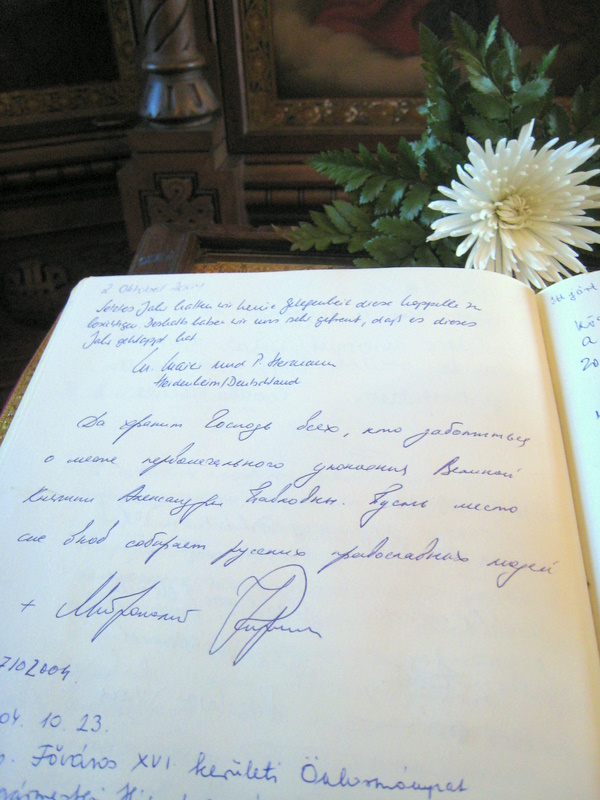 2. Oktober 2004
Letztes Jahr hatten wir keine Gelegenheit diese Kappelle zu
besichtigen. Deshalb haben wir uns sehr gefreut, daß es dieses
Jahr geklappt hat.
und P. Hermann
Heidenheim/Deutschland
Да хранит Господь всех, кто заботиться
о месте первоначального упокоения Великой
Княгини Александры Павловны. Пусть место
сие вновь собирает русских православных людей
+ Митрополит Кирилл
7102004.
04. 10. 23.
Főváros XVI. kerületi Önkormányzat